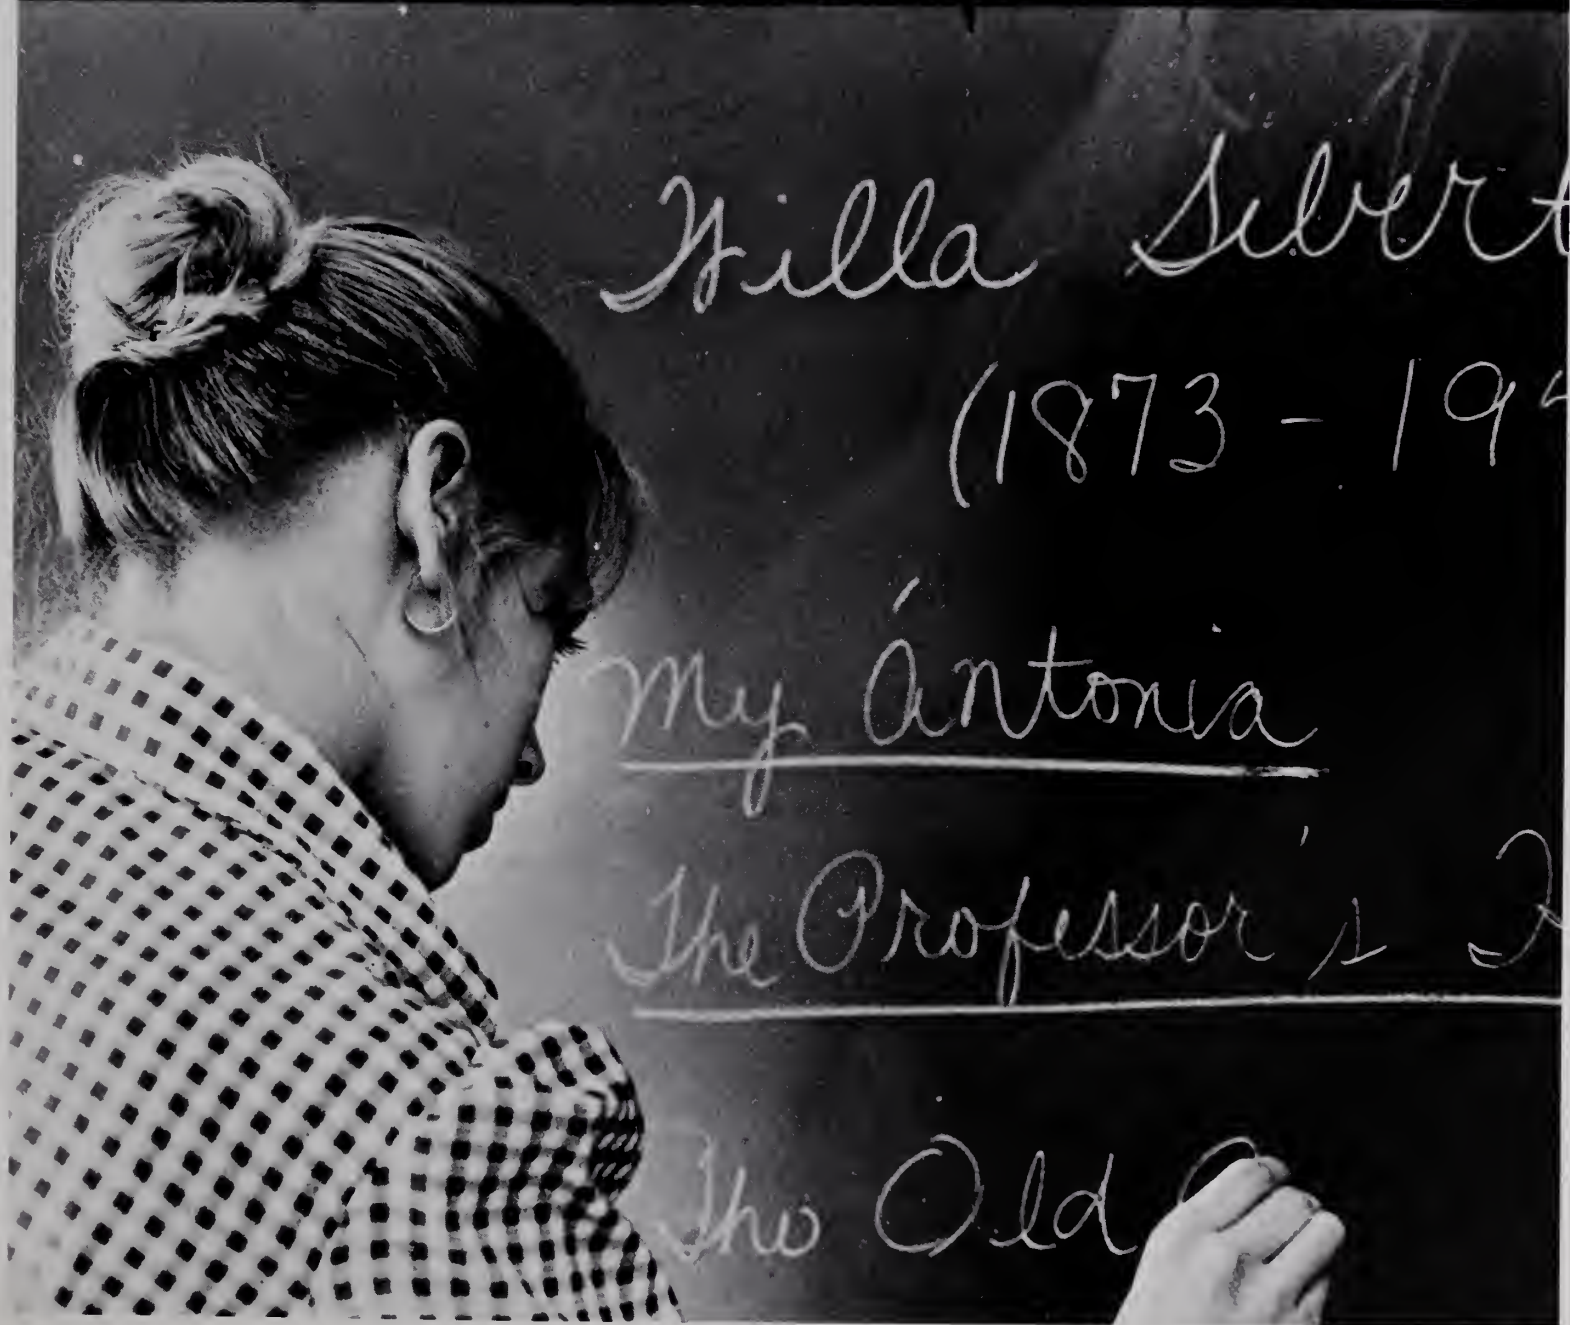 Willa Sibert
(1873 - 19
My Ántonia
The Professor's
The Old